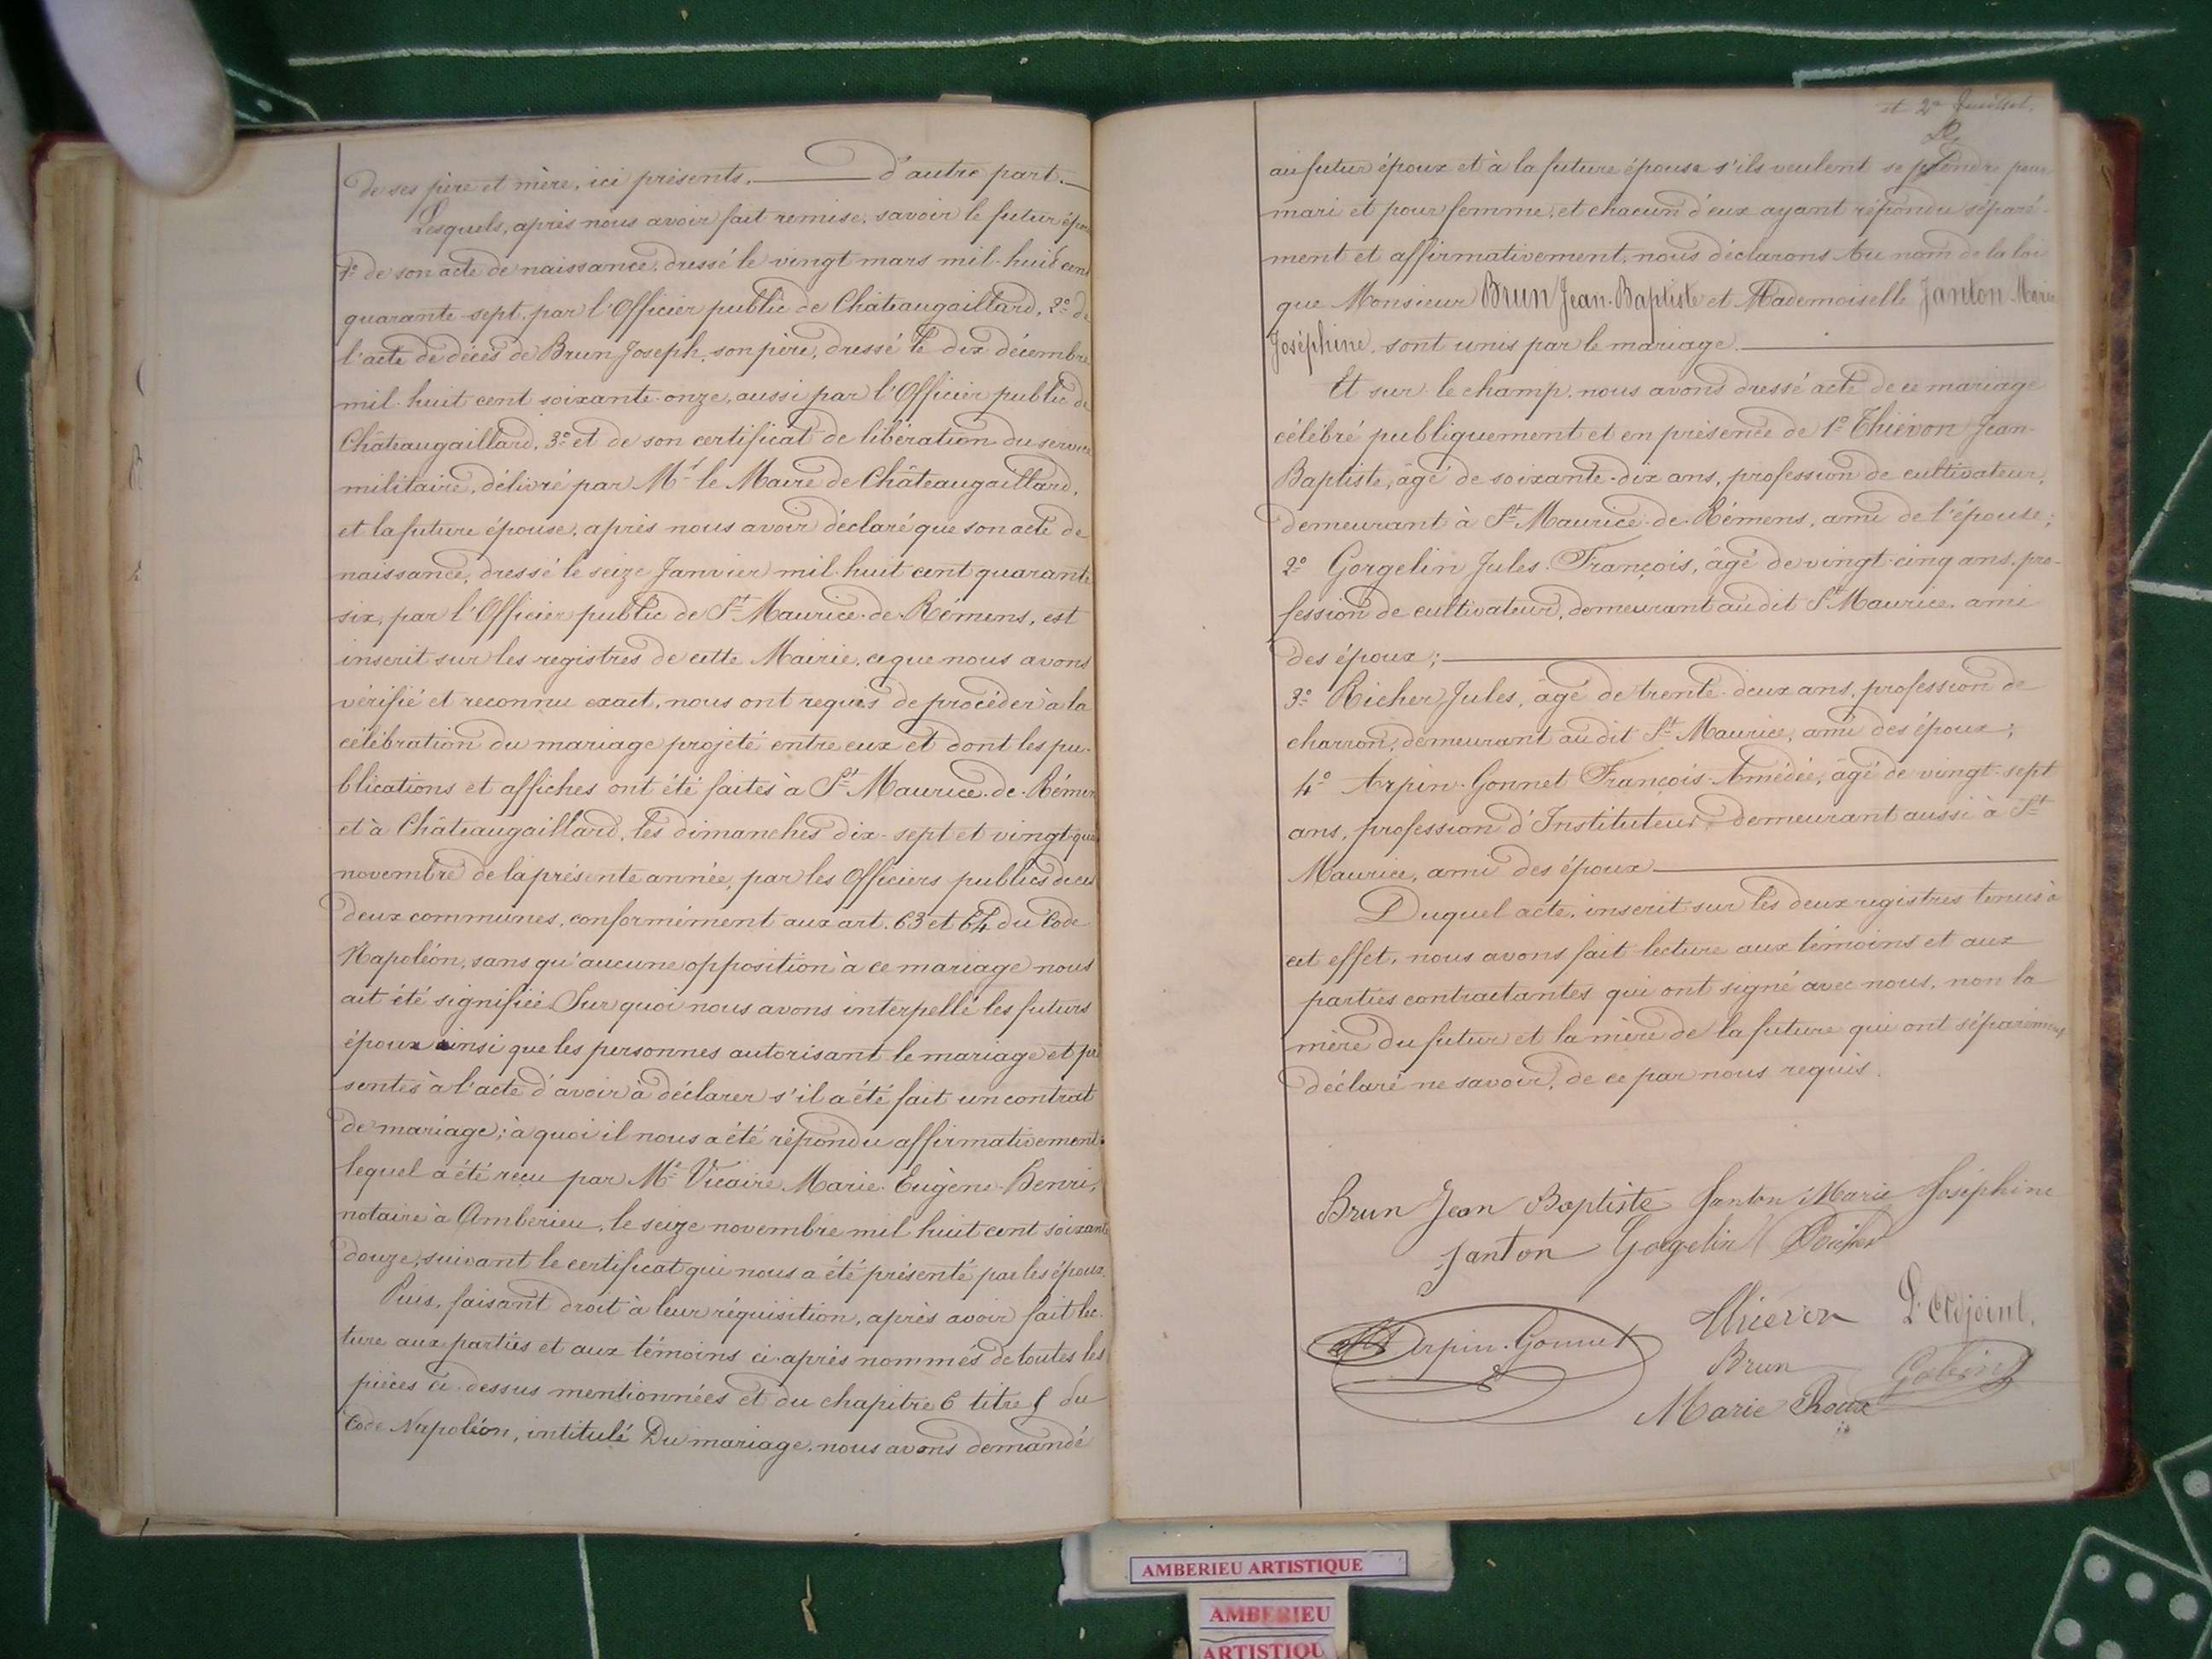 de ses père et mère, ici présents. d'autre part.
Lesquels, après nous avoir fait remise, savoir le futur épou
1º de son acte de naissance, dressé le vingt mars mil-huit cent
quarante-sept, par l'Officier public de Châteaugaillard, 2º de
l'acte de décès de Brun Joseph, son père, dressé le dix décembre
mil-huit cent soixante-onze, aussi par l'Officier public de
Châteaugaillard, 3º et de son certificat de libération du service
militaire, délivré par Mr le Maire de Châteaugaillard,
et la future épouse, après nous avoir déclaré que son acte de
naissance, dressé le seize Janvier mil-huit cent quarante
six, par l'Officier public de St Maurice-de-Rémens, est
inscrit sur les registres de cette Mairie, ce que nous avons
vérifié et reconnu exact, nous ont requis de procéder à la
célébration du mariage projeté entre eux et dont les pu-
blications et affiches ont été faites à St Maurice-de-Rémen
et à Châteaugaillard, les dimanches dix-sept et vingt-qua
novembre de la présente année, par les Officiers publics de ces
deux communes, conformément aux art. 63 et 64 du Code
Napoléon, sans qu'aucune opposition à ce mariage nous
ait été signifiée. Sur quoi nous avons interpellé les futurs
époux ainsi que les personnes autorisant le mariage et pré
sentes à l'acte d'avoir à déclarer s'il a été fait un contrat
de mariage; à quoi il nous a été répondu affirmativement
lequel a été reçu par Me Vicaire Marie-Eugène-Henri,
notaire à Amberieu, le seize novembre mil huit cent soixante
douze, suivant le certificat qui nous a été présenté par les époux.
Puis, faisant droit à leur réquisition, après avoir fait lec-
ture aux parties et aux témoins ci-après nommés de toutes les
pièces ci-dessus mentionnées et du chapitre 6 titre 5 du
Code Napoléon, intitulé Du mariage, nous avons demandé
et 2e feuillet.
au futur époux et à la future épouse s'ils veulent se prendre pour
mari et pour femme, et chacun d'eux ayant répondu séparé-
ment et affirmativement, nous déclarons Au nom de la loi
que Monsieur Brun Jean-Baptiste et Mademoiselle Janton Marie
Joséphine, sont unis par le mariage.
Et sur-le-champ, nous avons dressé acte de ce mariage
célébré publiquement et en présence de 1º Thiévon Jean-
Baptiste, âgé de soixante-dix ans, profession de cultivateur,
demeurant à St Maurice-de-Rémens, ami de l'épouse;
2º Gorgelin Jules-François, âgé de vingt-cinq ans, pro-
fession de cultivateur, demeurant audit St Maurice, ami
des époux;
3º Richer Jules, âgé de trente-deux ans, profession de
charron, demeurant audit St Maurice, ami des époux;
4º Arpin-Gonnet François-Amédée, âgé de vingt-sept
ans, profession d'Instituteur, demeurant aussi à St
Maurice, ami des époux
Duquel acte, inscrit sur les deux registres tenus à
cet effet, nous avons fait lecture aux témoins et aux
parties contractantes qui ont signé avec nous, non la
mère du futur et la mère de la future qui ont séparément
déclaré ne savoir, de ce par nous requis.
Brun Jean Baptiste Janton Marie Joséphine
Janton Gorgelin Richer
Arpin-Gonnet Thievon L'Adjoint,
Brun Gobin
Marie Roux
AMBERIEU ARTISTIQUE
AMBERIEU
ARTISTIQU